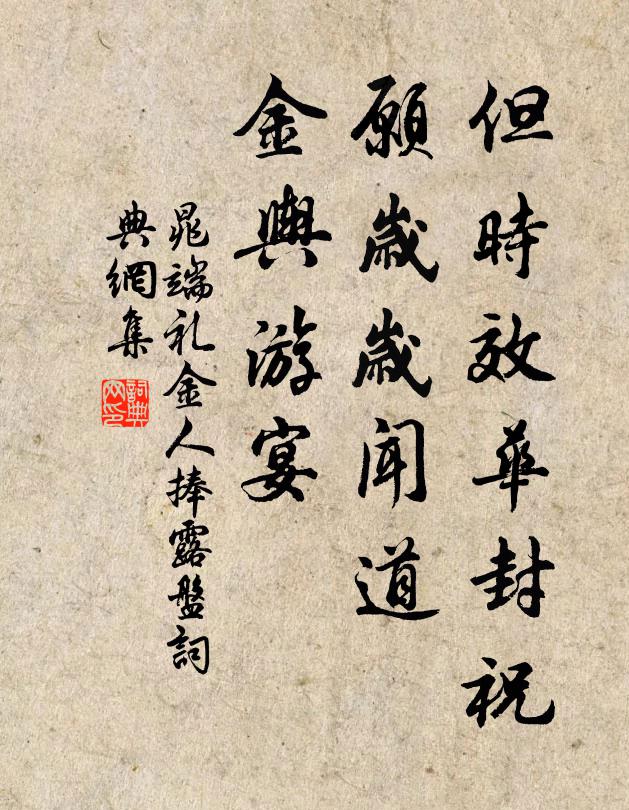 但時效華封祝
願歲歲聞道
金輿游宴
晁端礼金人捧露盤詞
典網集
詞典网印